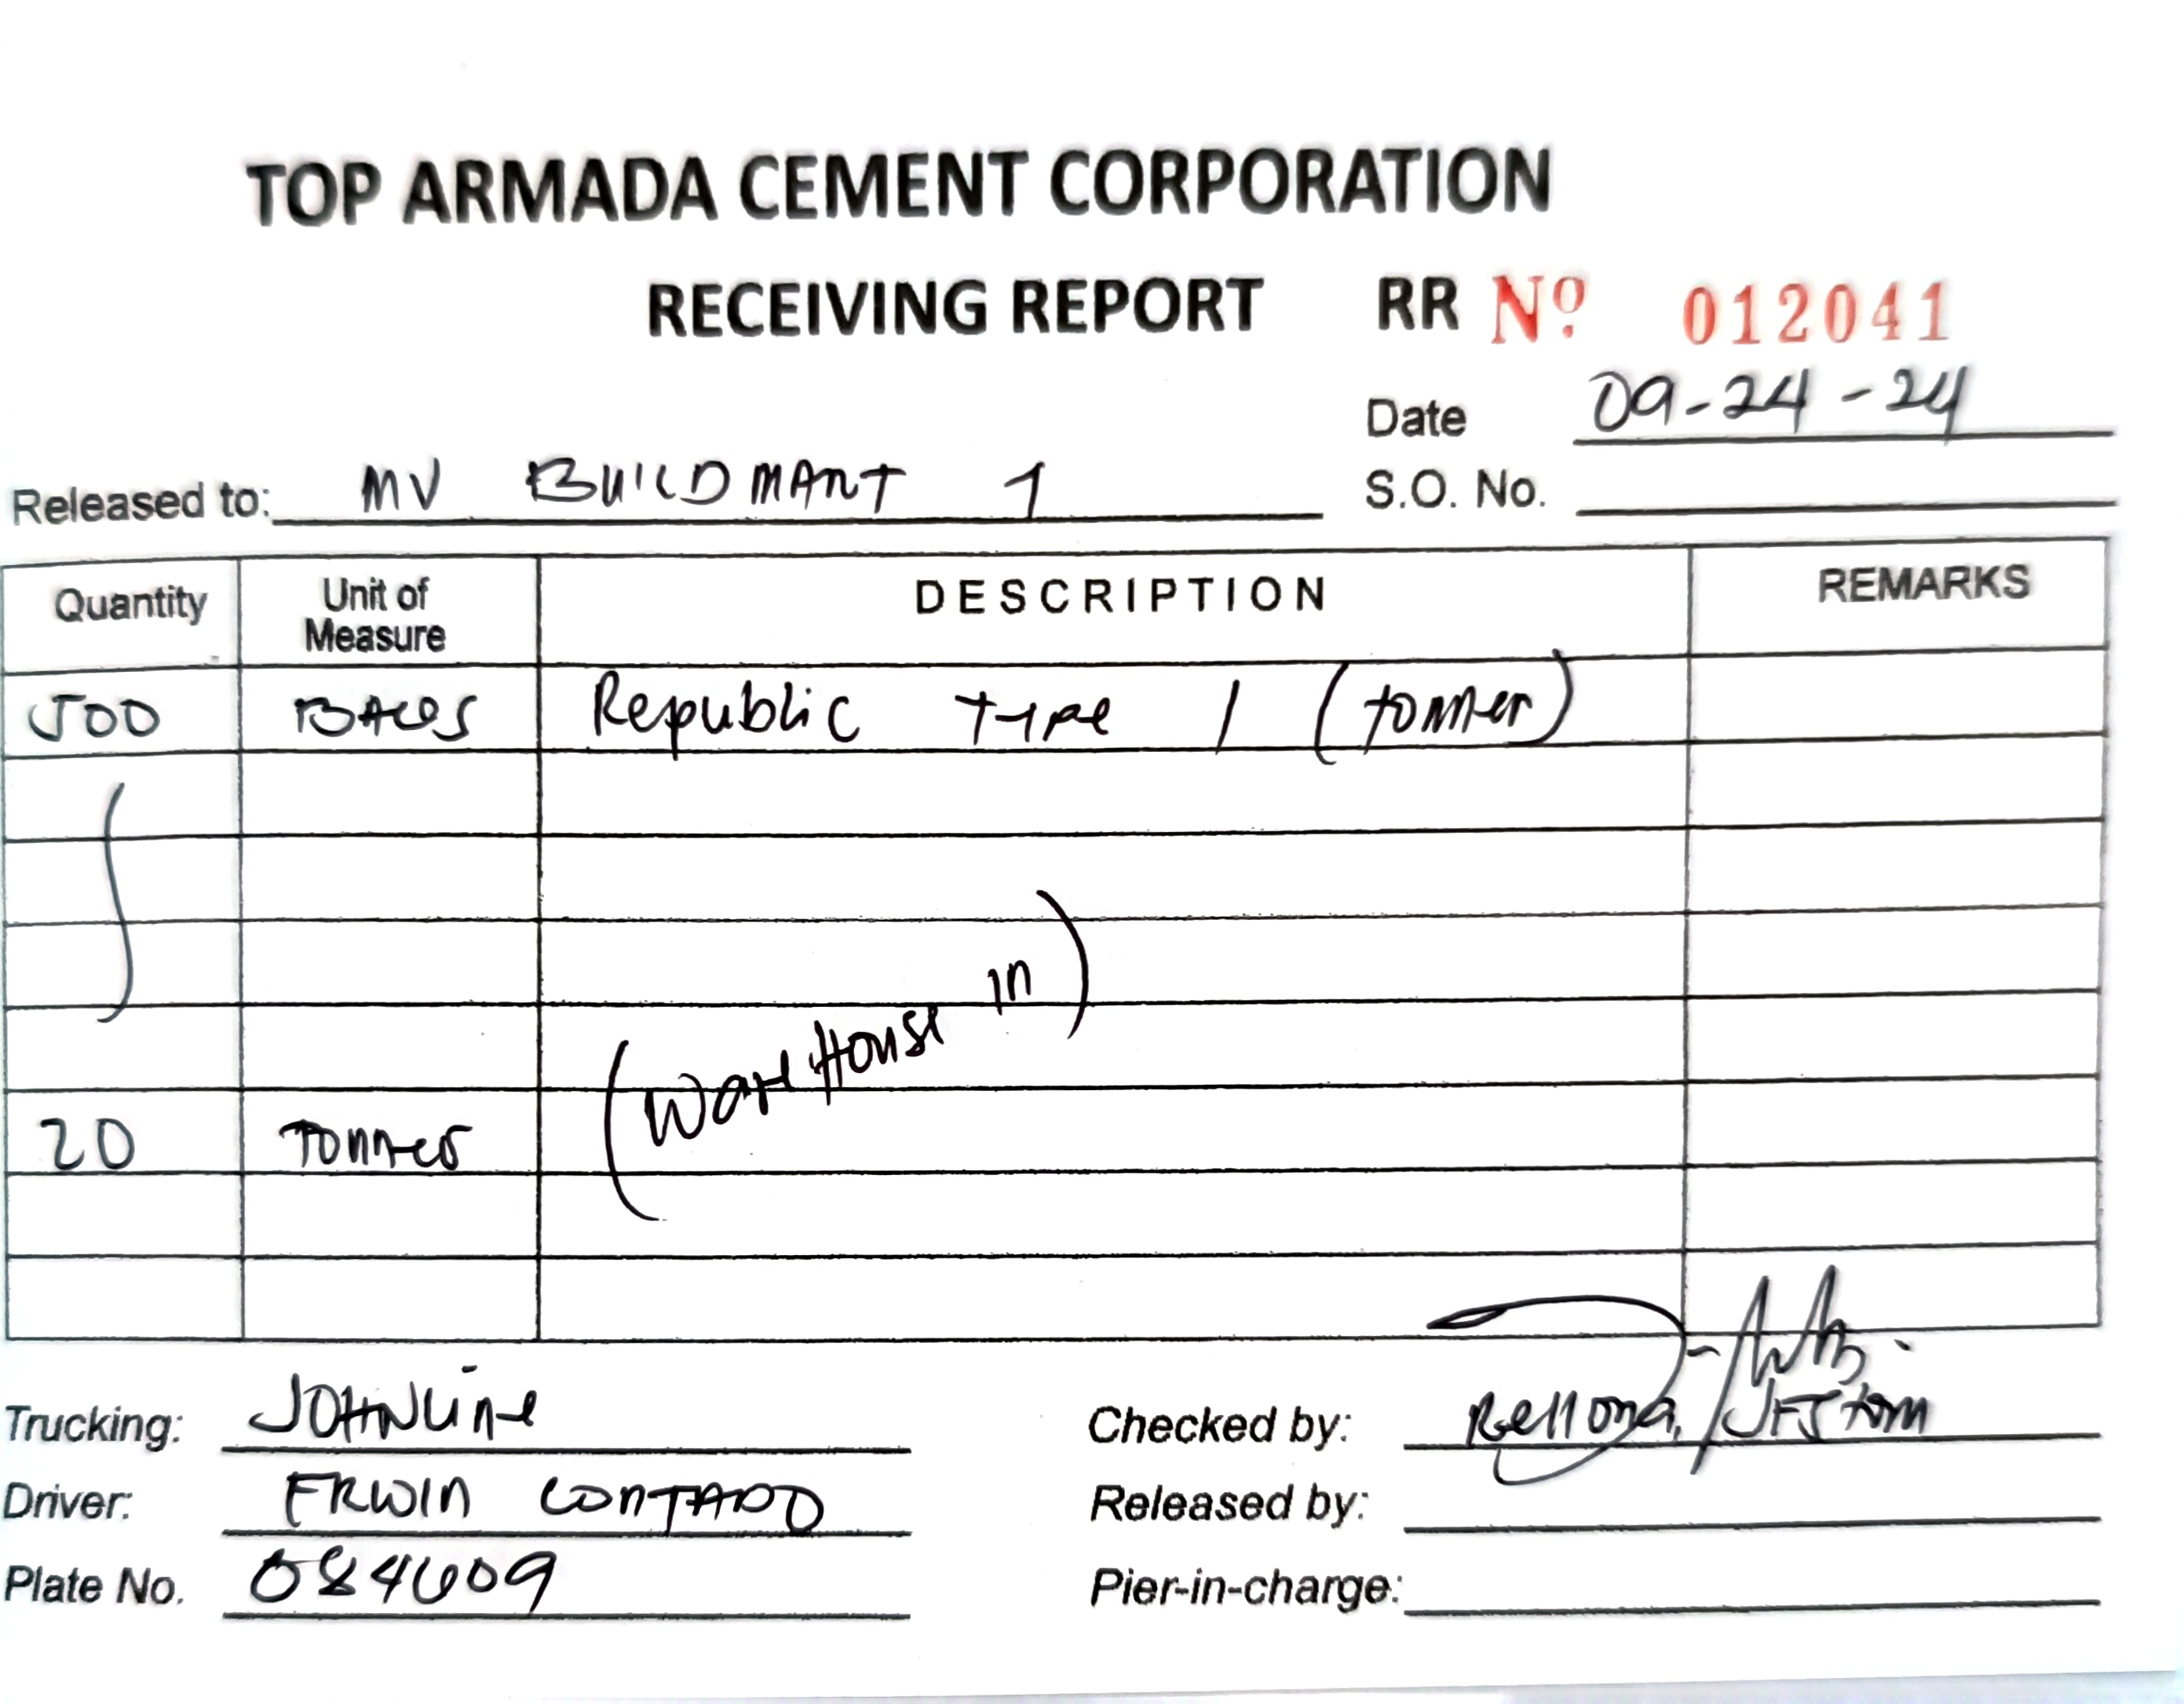 TOP ARMADA CEMENT CORPORATION
RECEIVING REPORT RR Nº 012041
Date 09-24-24
Released to: MV BUILDMART 1 S.O. No.
Quantity Unit of Measure DESCRIPTION REMARKS
500 BAGS Republic Type 1 (tonner)
(WareHouse in)
20 Tonner
Trucking: JOHNLine Checked by: Rellona,
Driver: ERWIN CONTADO Released by:
Plate No. 084609 Pier-in-charge: